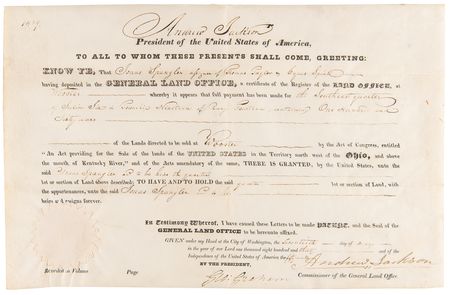 Andrew Jackson
President of the United States of America,
TO ALL TO WHOM THESE PRESENTS SHALL COME, GREETING:
KNOW YE, That Jonas Spangler assignee of Thomas Taylor &
having deposited in the GENERAL LAND OFFICE, a certificate of the Register of the LAND OFFICE, at
Wooster whereby it appears that full payment has been made for the Southeast quarter
of Section Six in Township Nineteen of Range Fourteen containing One Hundred and
of the Lands directed to be sold at Wooster by the Act of Congress, entitled
"An Act providing for the Sale of the lands of the UNITED STATES in the Territory north west of the Ohio, and above
the mouth of Kentucky River," and of the Acts amendatory of the same, THERE IS GRANTED, by the United States, unto the
said Jonas Spangler & to his heirs the quarter
lot or Section of Land above described; TO HAVE AND TO HOLD the said quarter lot or section of Land, with
the appurtenances, unto the said Jonas Spangler & to his
heirs & assigns forever.
In Testimony Whereof, I have caused these Letters to be made PATENT, and the Seal of the
GENERAL LAND OFFICE to be hereunto affixed.
GIVEN under my Hand at the City of Washington, the Twentieth day of May
in the year of our Lord one thousand eight hundred and thirty and of the
Independence of the United States of America the fifty
BY THE PRESIDENT, Andrew Jackson
Geo: Graham Commissioner of the General Land Office.
Recorded in Volume Page